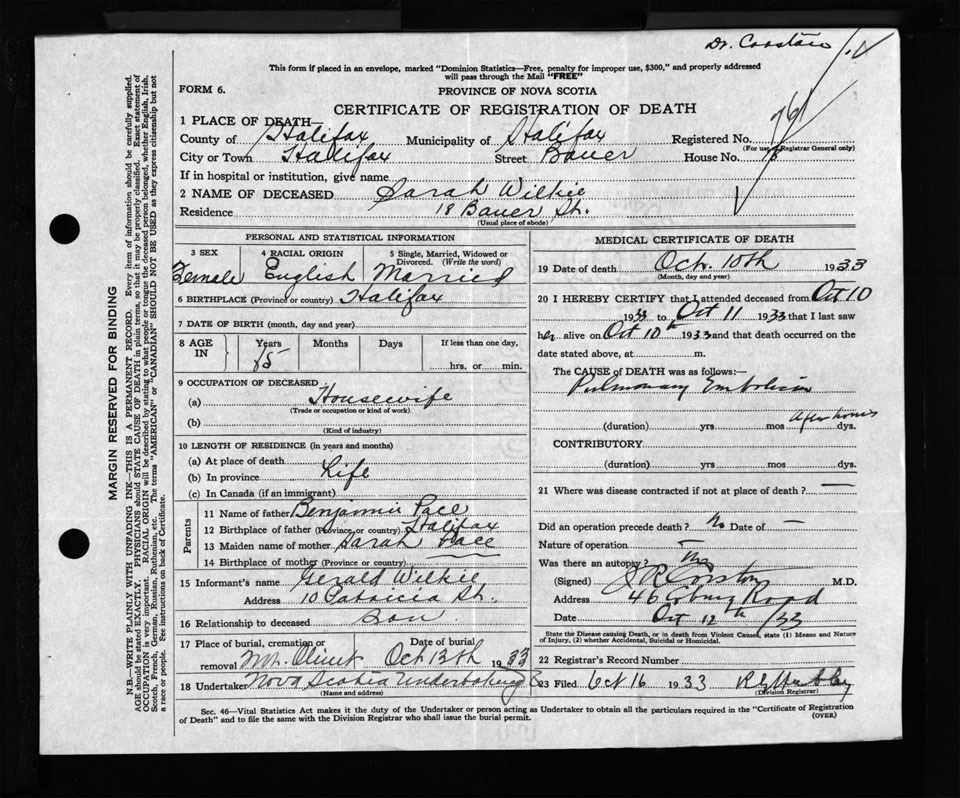 Dr. Corston
This form if placed in an envelope, marked "Dominion Statistics—Free, penalty for improper use, $300," and properly addressed
will pass through the Mail "FREE"
FORM 6.
PROVINCE OF NOVA SCOTIA
CERTIFICATE OF REGISTRATION OF DEATH
1 PLACE OF DEATH—
County of Halifax Municipality of Halifax Registered No. 761
(For use of Registrar General only)
City or Town Halifax Street Bauer House No. 18
If in hospital or institution, give name
2 NAME OF DECEASED Sarah Wilkie
Residence 18 Bauer St.
(Usual place of abode)
PERSONAL AND STATISTICAL INFORMATION
3 SEX 4 RACIAL ORIGIN 5 Single, Married, Widowed or
Divorced. (Write the word)
Female English Married
6 BIRTHPLACE (Province or country) Halifax
7 DATE OF BIRTH (month, day and year)
8 AGE IN Years Months Days If less than one day,
hrs. or min.
9 OCCUPATION OF DECEASED
(a) Housewife
(Trade or occupation or kind of work)
(b)
(Kind of industry)
10 LENGTH OF RESIDENCE (in years and months)
(a) At place of death
(b) In province Life
(c) In Canada (if an immigrant)
Parents
11 Name of father Benjamin Pace
12 Birthplace of father (Province or country) Halifax
13 Maiden name of mother Sarah Pace
14 Birthplace of mother (Province or country) —
15 Informant's name Gerald Wilkie
Address 10 Patricia St.
16 Relationship to deceased Son
17 Place of burial, cremation or Date of burial
removal Mt. Olivet Oct 13th 1933
18 Undertaker Nova Scotia Undertaking
(Name and address)
MEDICAL CERTIFICATE OF DEATH
19 Date of death Oct. 10th 1933
(Month, day and year)
20 I HEREBY CERTIFY that I attended deceased from Oct 10
1933 to Oct 11 1933 that I last saw
her alive on Oct 10th 1933 and that death occurred on the
date stated above, at m.
The CAUSE of DEATH was as follows:—
Pulmonary Embolism
(duration) yrs mos A few hours dys.
CONTRIBUTORY
(duration) yrs. mos. dys.
21 Where was disease contracted if not at place of death? —
Did an operation precede death? No Date of —
Nature of operation —
Was there an autopsy? No
(Signed) J R Corston M.D.
Address 46 Coburg Road
Date Oct 12th /33
State the Disease causing Death, or in death from Violent Causes, state (1) Means and Nature
of Injury, (2) whether Accidental, Suicidal or Homicidal.
22 Registrar's Record Number
23 Filed Oct 16 1933
(Division Registrar)
Sec. 46—Vital Statistics Act makes it the duty of the Undertaker or person acting as Undertaker to obtain all the particulars required in the "Certificate of Registration
of Death" and to file the same with the Division Registrar who shall issue the burial permit.
(OVER)
MARGIN RESERVED FOR BINDING
N.B.—WRITE PLAINLY WITH UNFADING INK—THIS IS A PERMANENT RECORD. Every item of information should be carefully supplied.
AGE should be stated EXACTLY. PHYSICIANS should STATE CAUSE OF DEATH in plain terms, so that it may be properly classified. Exact statement of
OCCUPATION is very important. RACIAL ORIGIN will be described by stating to what people or tongue the deceased person belonged, whether English, Irish,
Scotch, French, German, Russian, Ruthenian, etc. The terms "AMERICAN" or "CANADIAN" SHOULD NOT BE USED as they express citizenship but not
a race or people. See instructions on back of Certificate.